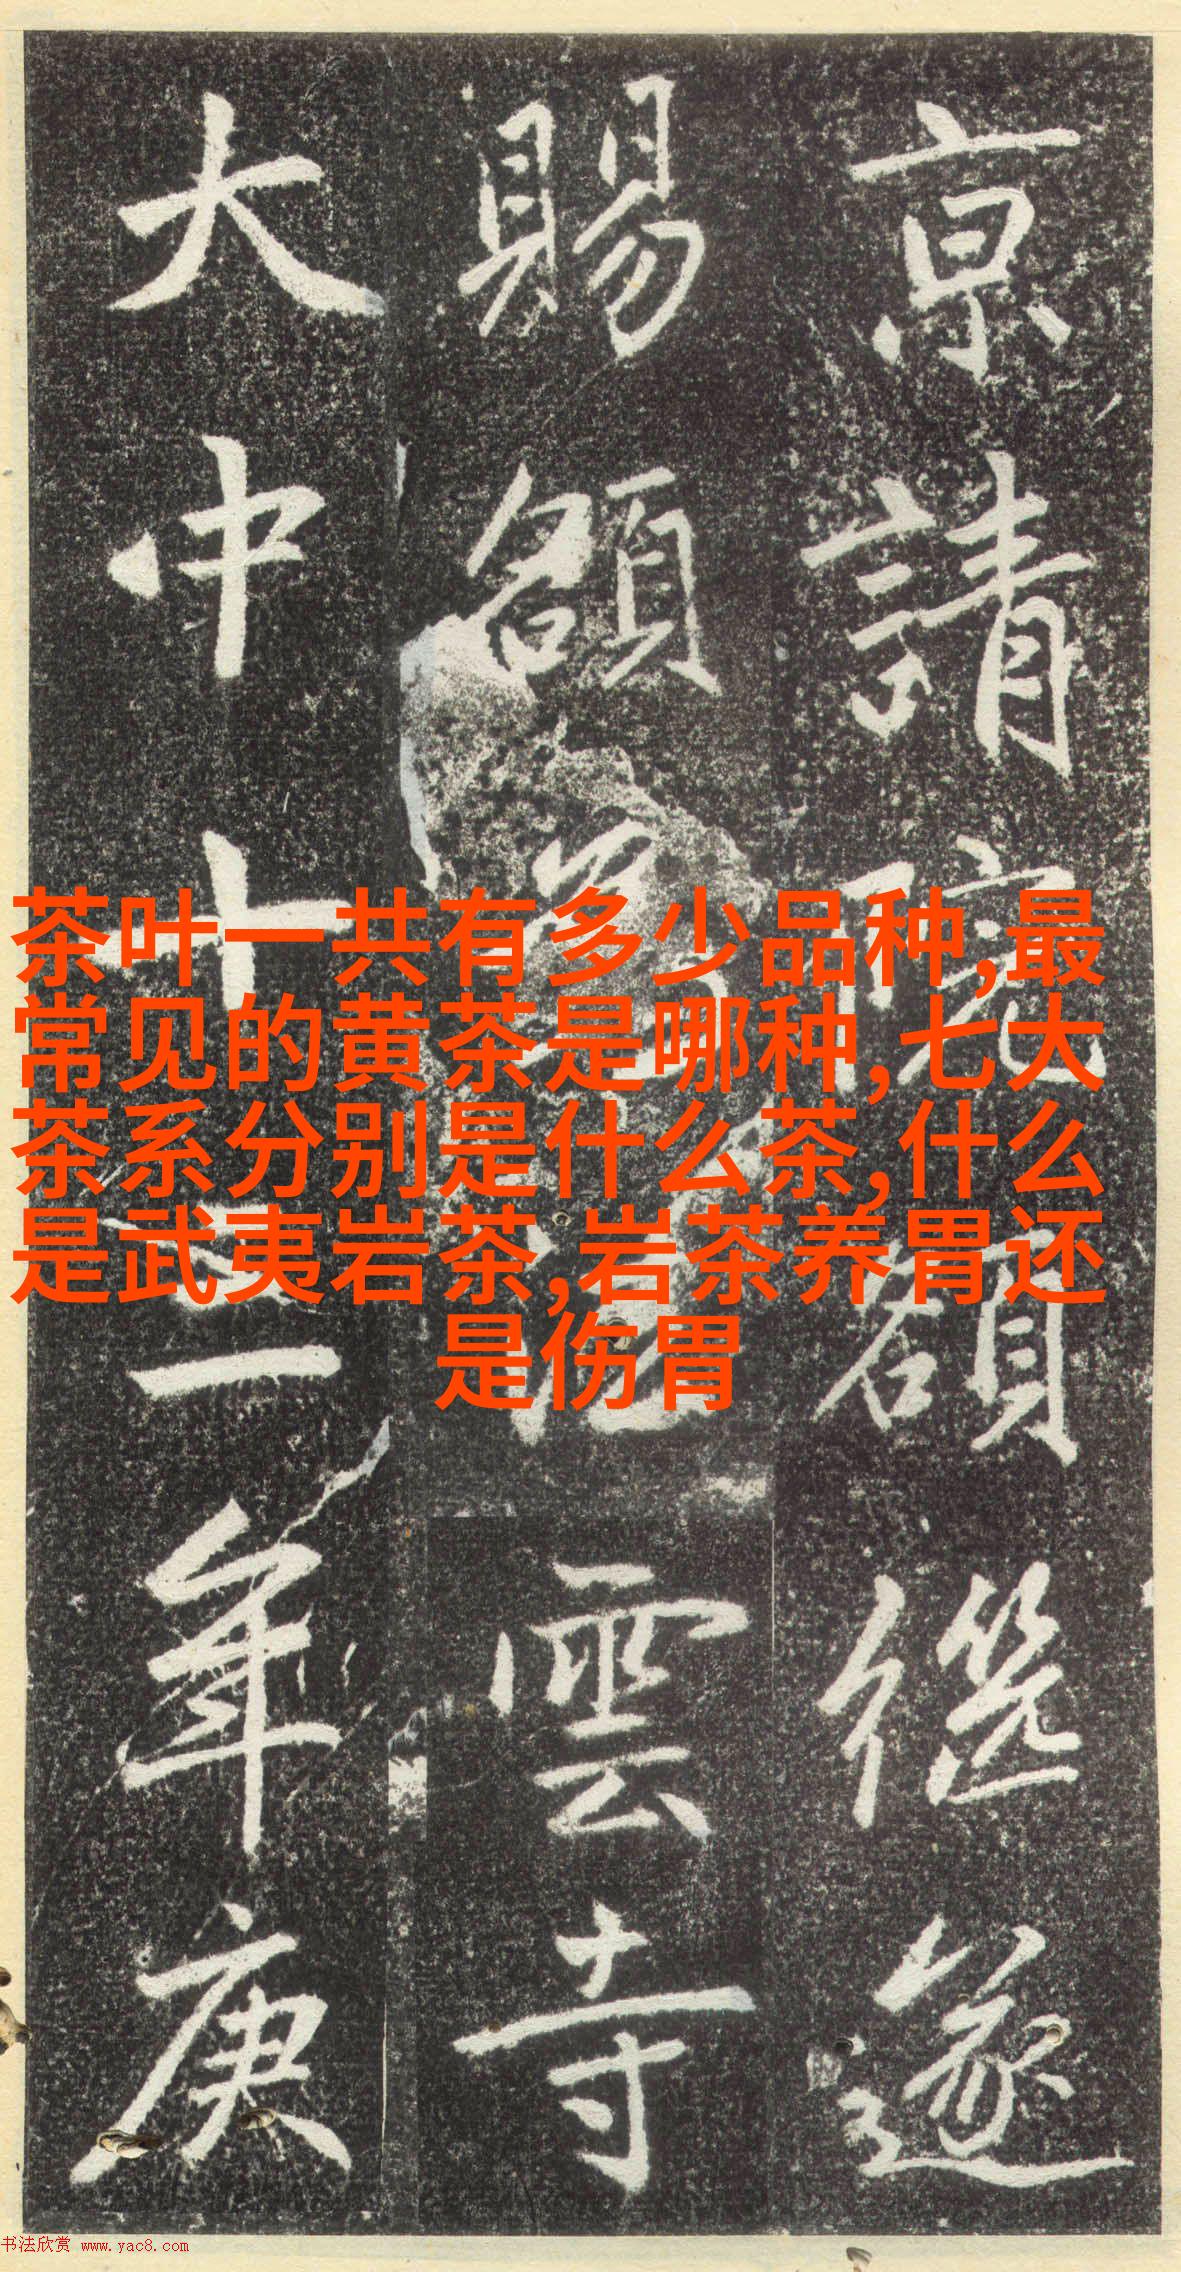 京請院額繼遂
賜額
雲寺
大中十三年庚
茶叶一共有多少品种,最
常见的黄茶是哪种,七大
茶系分别是什么茶,什么
是武夷岩茶,岩茶养胃还
是伤胃
书法欣赏 www.yac8.com